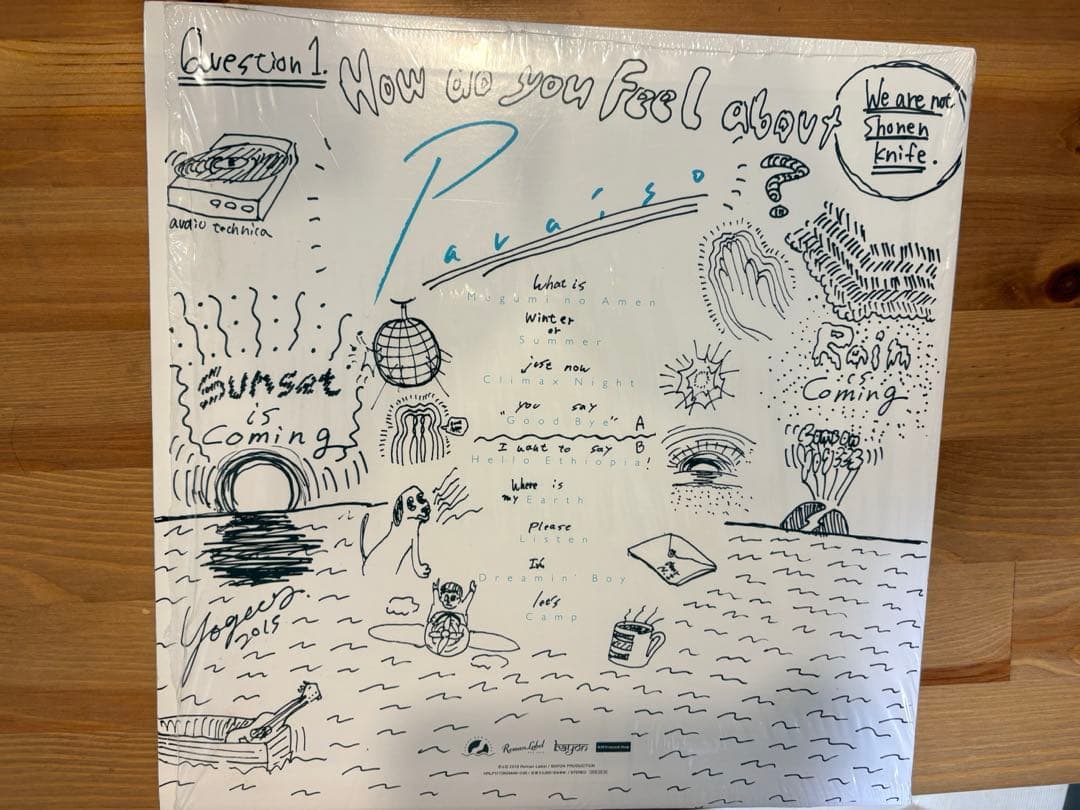 Question 1.
How do you Feel about
We are not
Shonen
knife.
Paraiso
?
audio technica
What is
Megumi no Amen
Winter
or
Summer
just now
Climax Night
"you say
Good Bye" A
I want to say B
Hello Ethiopia!
Where is
my Earth
Please
Listen
I'm
Dreamin' Boy
let's
Camp
SUNSET
is
Coming
Rain
is
Coming
Yogees
2015
Roman Label
bayon